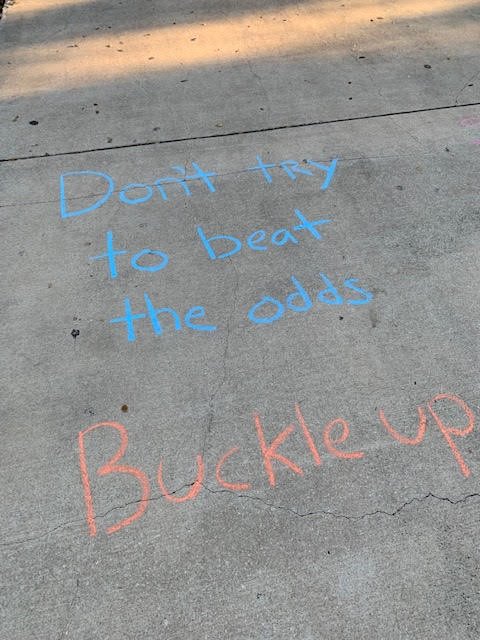 Don't try
to beat
the odds
Buckle up